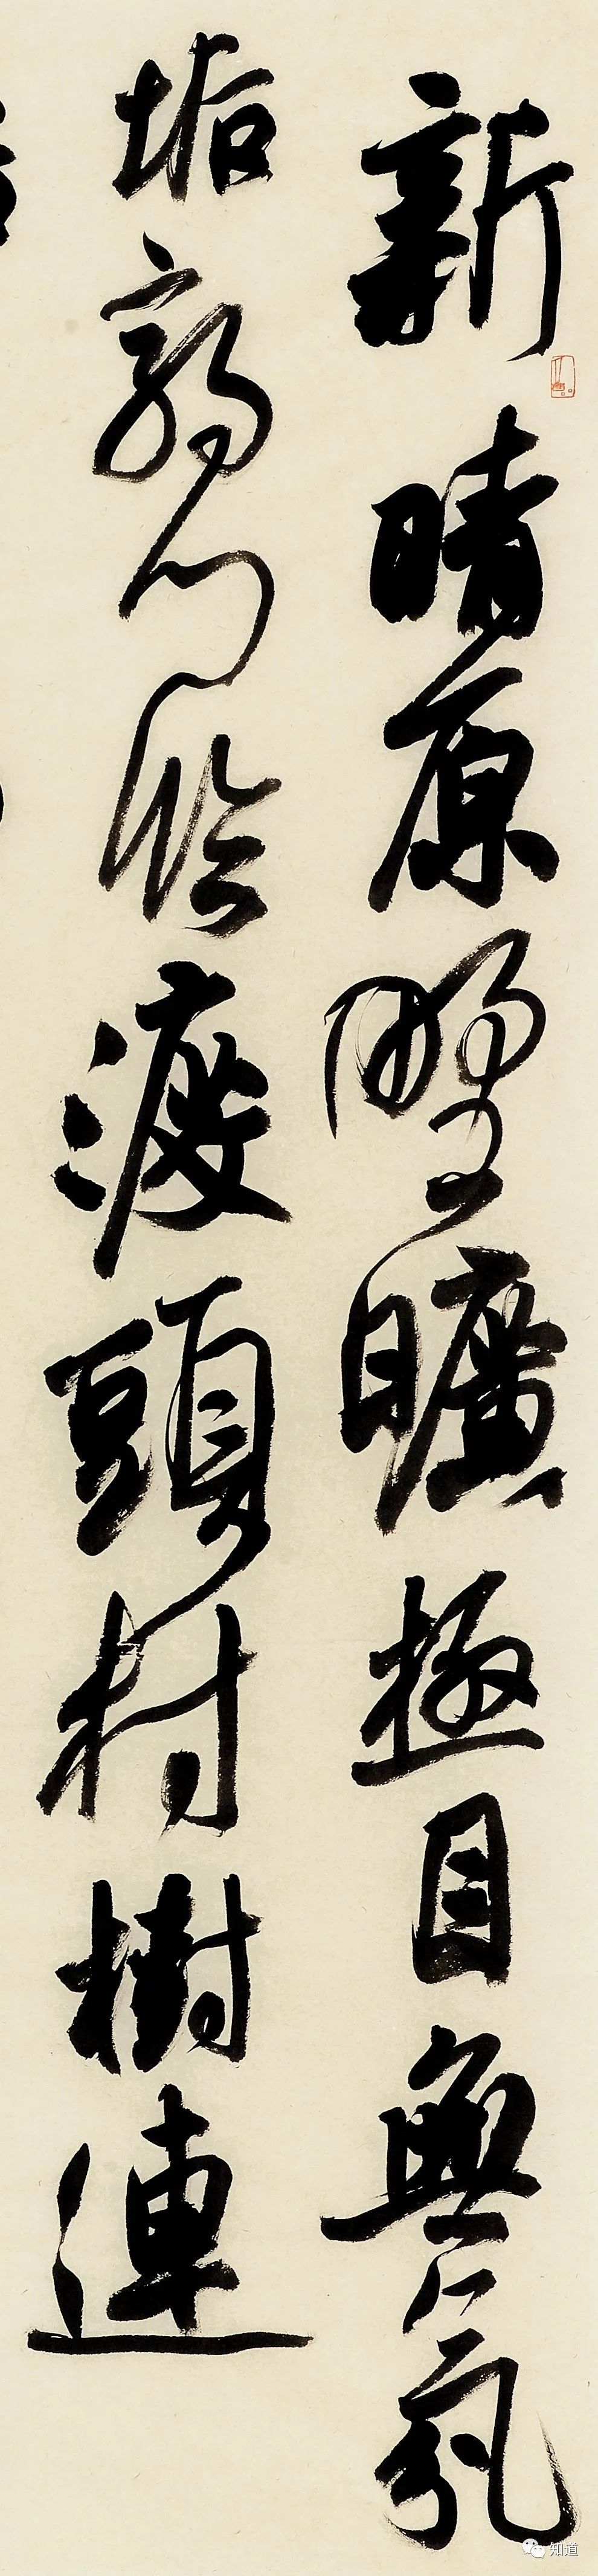 新晴原野曠極目無氛
垢郭門臨渡頭村樹連
知道